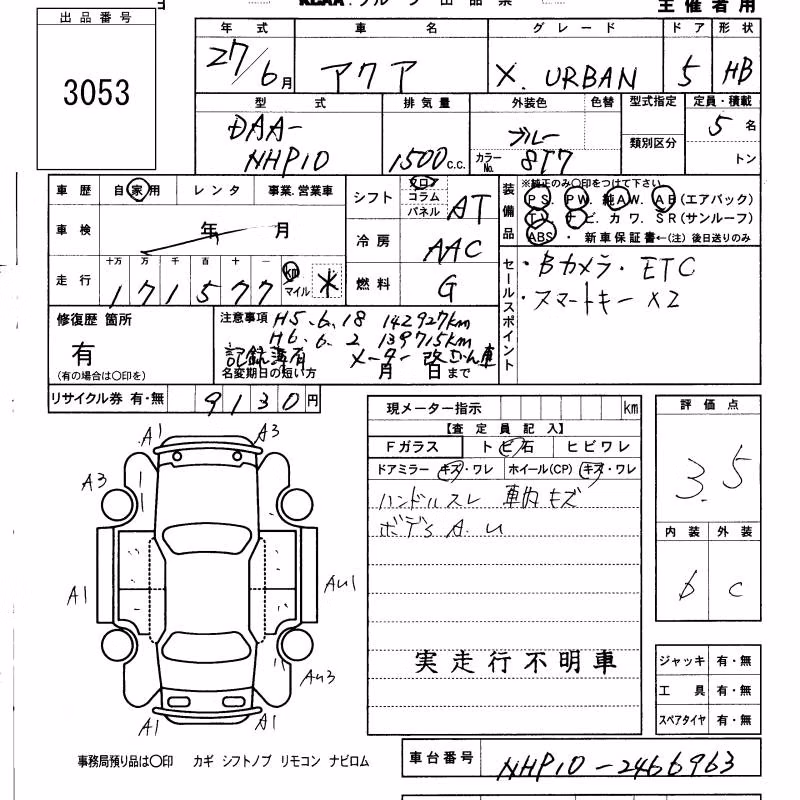 出品番号
3053
主催者用
年式 車名 グレード ドア 形状
27/6月 アクア X. URBAN 5 HB
型式 排気量 外装色 色替 型式指定 定員・積載
DAA-NHP10 1500c.c. ブルー 5名
カラーNo. 8T7 類別区分 トン
車歴 自家用 レンタ 事業.営業車
シフト フロア コラム パネル AT
装備品 ※純正のみ○印をつけて下さい
PS. PW. 純AW. AB(エアバッグ)
TV. ナビ. カワ. SR(サンルーフ)
ABS ・ 新車保証書←(注)後日送りのみ
車検 年 月
冷房 AAC
走行 十万 万 千 百 十 一
171577 km マイル *
燃料 G
セールスポイント
・Bカメラ・ETC
・スマートキー×2
修復歴 箇所
有
(有の場合は○印を)
注意事項 H5.6.18 142927km
H6.6.2 139715km
記録簿有 メーター改ざん車
名変期日の短い方 月 日まで
リサイクル券 有・無 9130円
現メーター指示 km
【査定員記入】
Fガラス トビ石 ヒビワレ
ドアミラー キズ・ワレ ホイール(CP) キズ・ワレ
ハンドルスレ 車内キズ
ボデS A.U
実走行不明車
評価点
3.5
内装 外装
D C
ジャッキ 有・無
工具 有・無
スペアタイヤ 有・無
A1 A3
A3
A1 AU1
AU3
A1 A1
事務局預り品は○印 カギ シフトノブ リモコン ナビロム
車台番号 NHP10-2466963